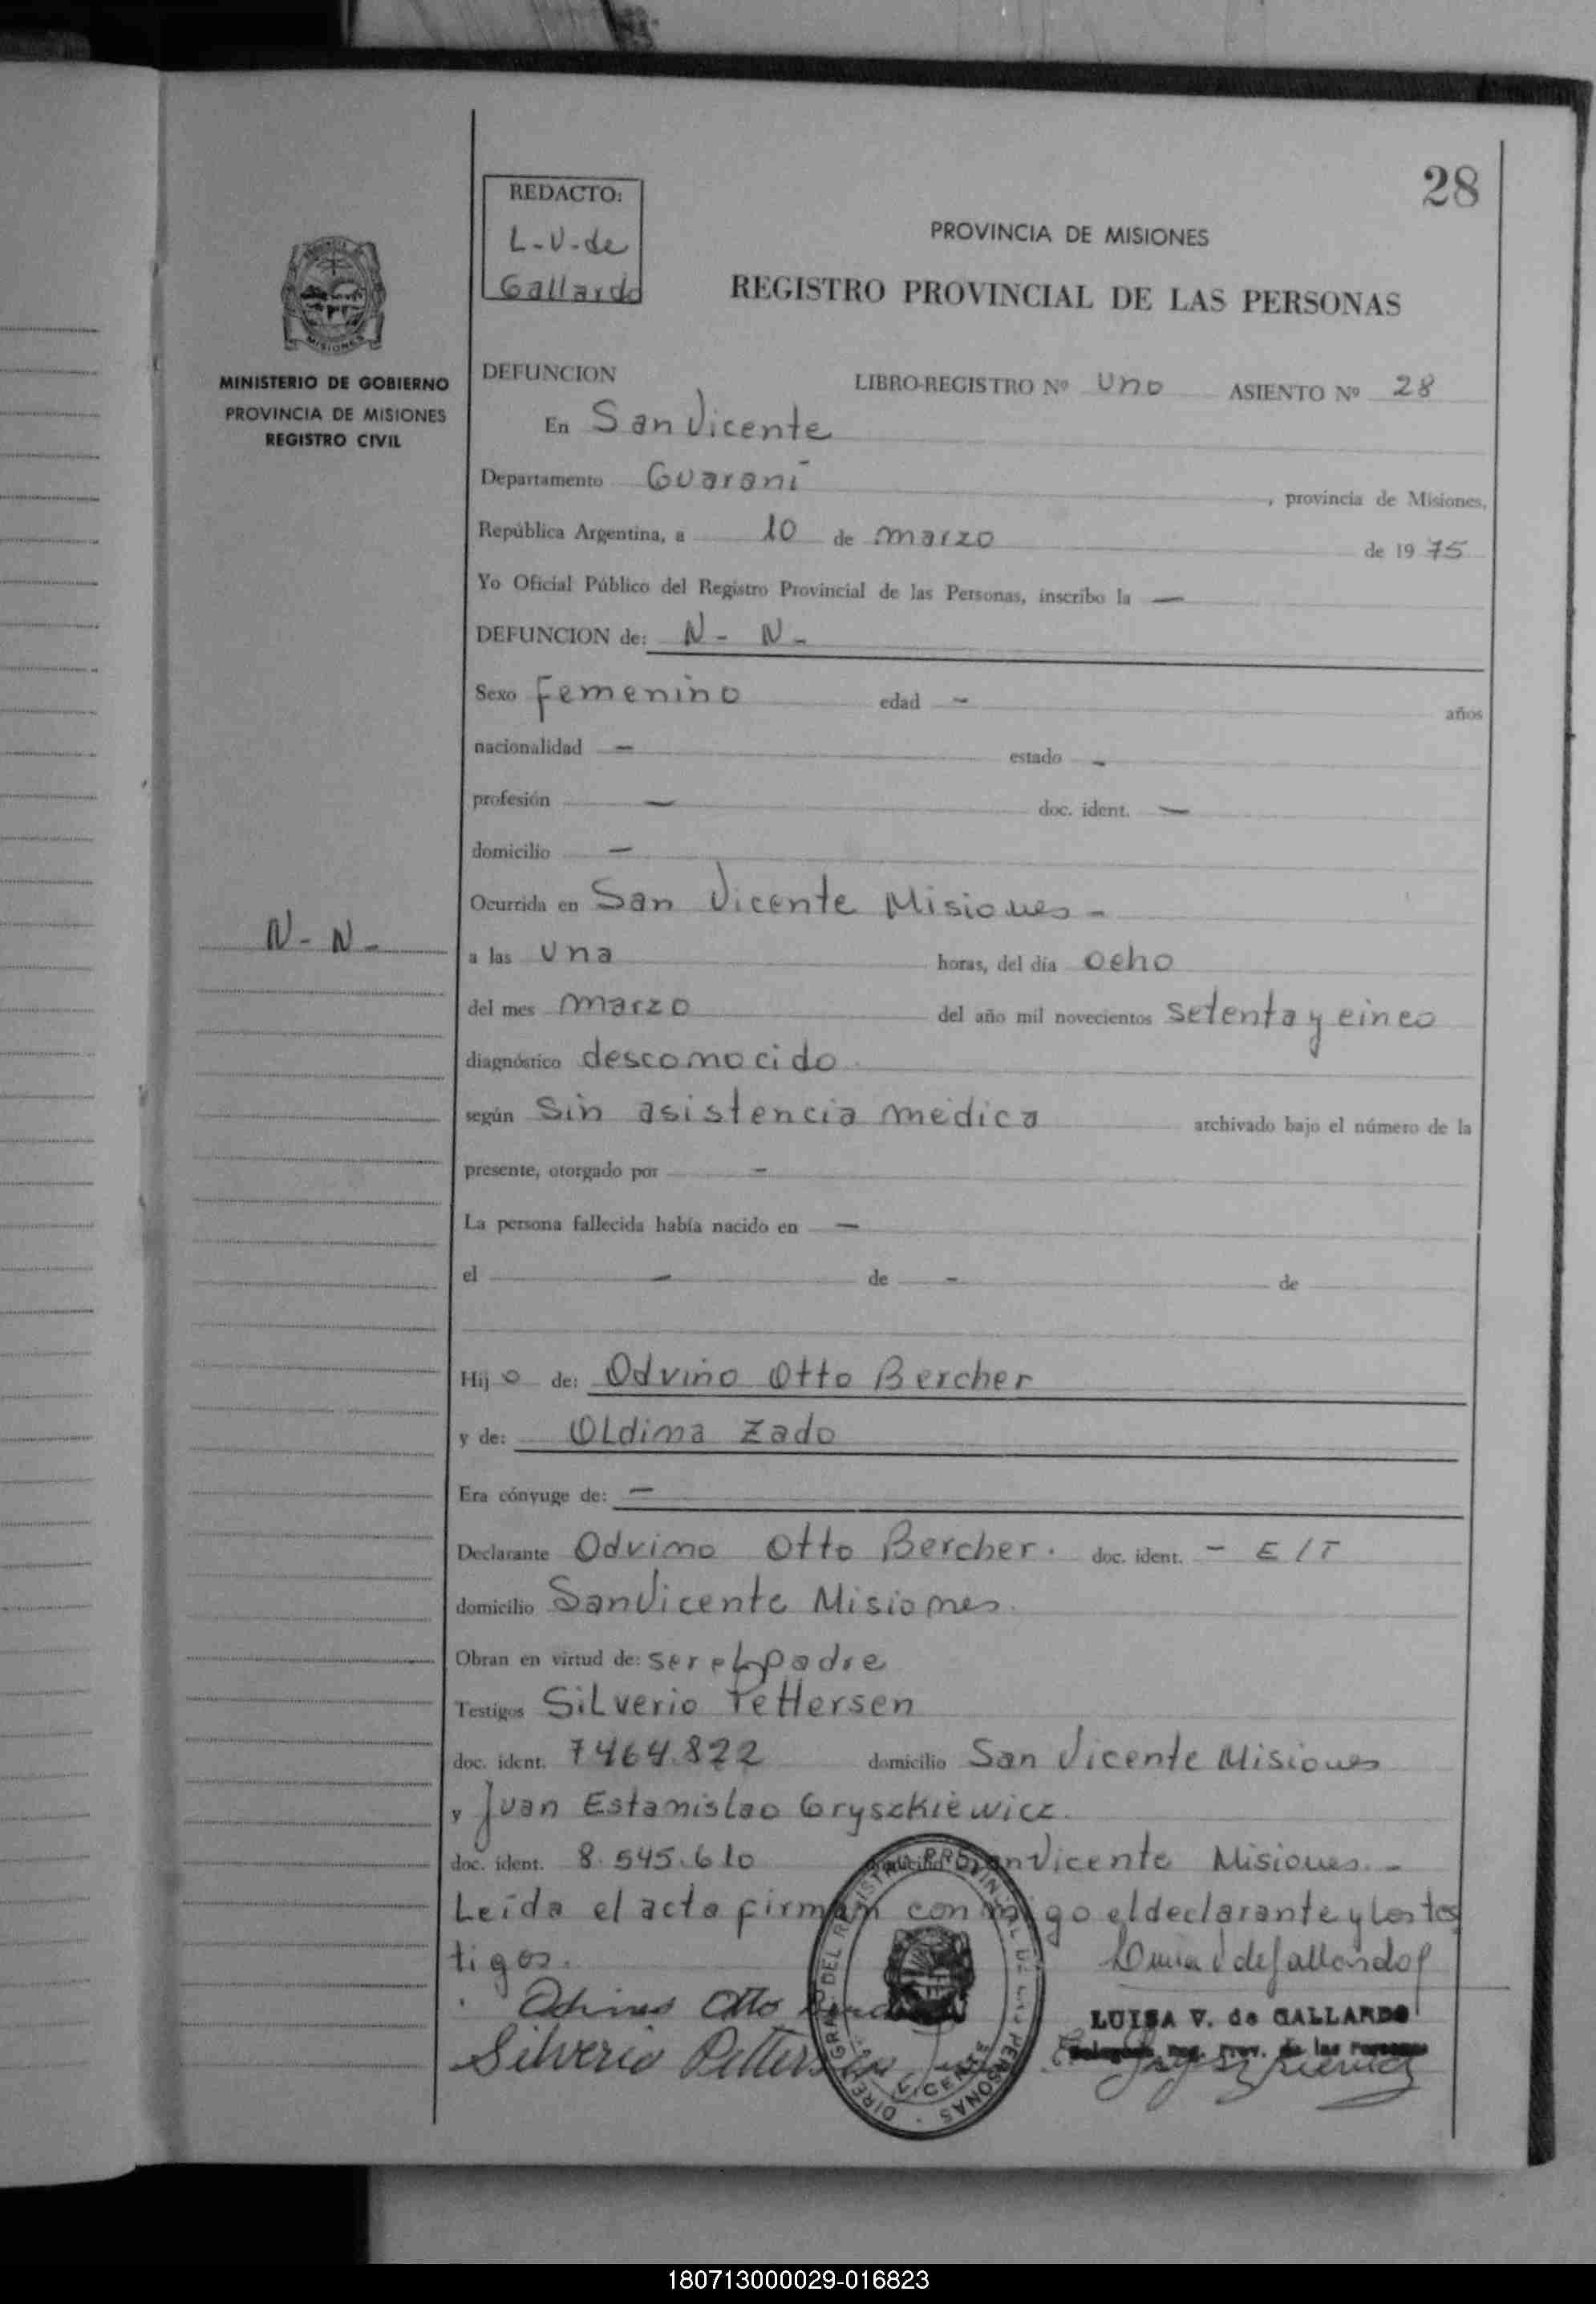 28
REDACTO:
L-V-de
Gallardo
PROVINCIA DE MISIONES
REGISTRO PROVINCIAL DE LAS PERSONAS
MISIONES
MINISTERIO DE GOBIERNO
PROVINCIA DE MISIONES
REGISTRO CIVIL
DEFUNCION LIBRO-REGISTRO Nº Uno ASIENTO Nº 28
En San Vicente
Departamento Guaraní , provincia de Misiones,
República Argentina, a 10 de marzo de 1975
Yo Oficial Público del Registro Provincial de las Personas, inscribo la —
DEFUNCION de: N - N -
Sexo Femenino edad - años
nacionalidad — estado -
profesión — doc. ident. —
domicilio —
Ocurrida en San Vicente Misiones -
N - N -
a las Una horas, del día ocho
del mes marzo del año mil novecientos setenta y cinco
diagnóstico desconocido.
según Sin asistencia médica archivado bajo el número de la
presente, otorgado por -
La persona fallecida había nacido en —
el - de - de
Hijo de: Odvino Otto Bercher
y de: Oldima Zado
Era cónyuge de: —
Declarante Odvino Otto Bercher. doc. ident. - E/T
domicilio San Vicente Misiones.
Obran en virtud de: ser el padre
Testigos Silverio Pettersen
doc. ident. 7464.822 domicilio San Vicente Misiones
y Juan Estanislao Gryszkiewicz.
doc. ident. 8.545.610 San Vicente Misiones. -
Leída el acta firman conmigo el declarante y los tes
tigos.
Otto
Silverio Pettersen
LUISA V. de GALLARDO
Reg. Prov. de las Personas
DEL REGISTRO PROVINCIAL DE LAS PERSONAS
VICENTE
180713000029-016823